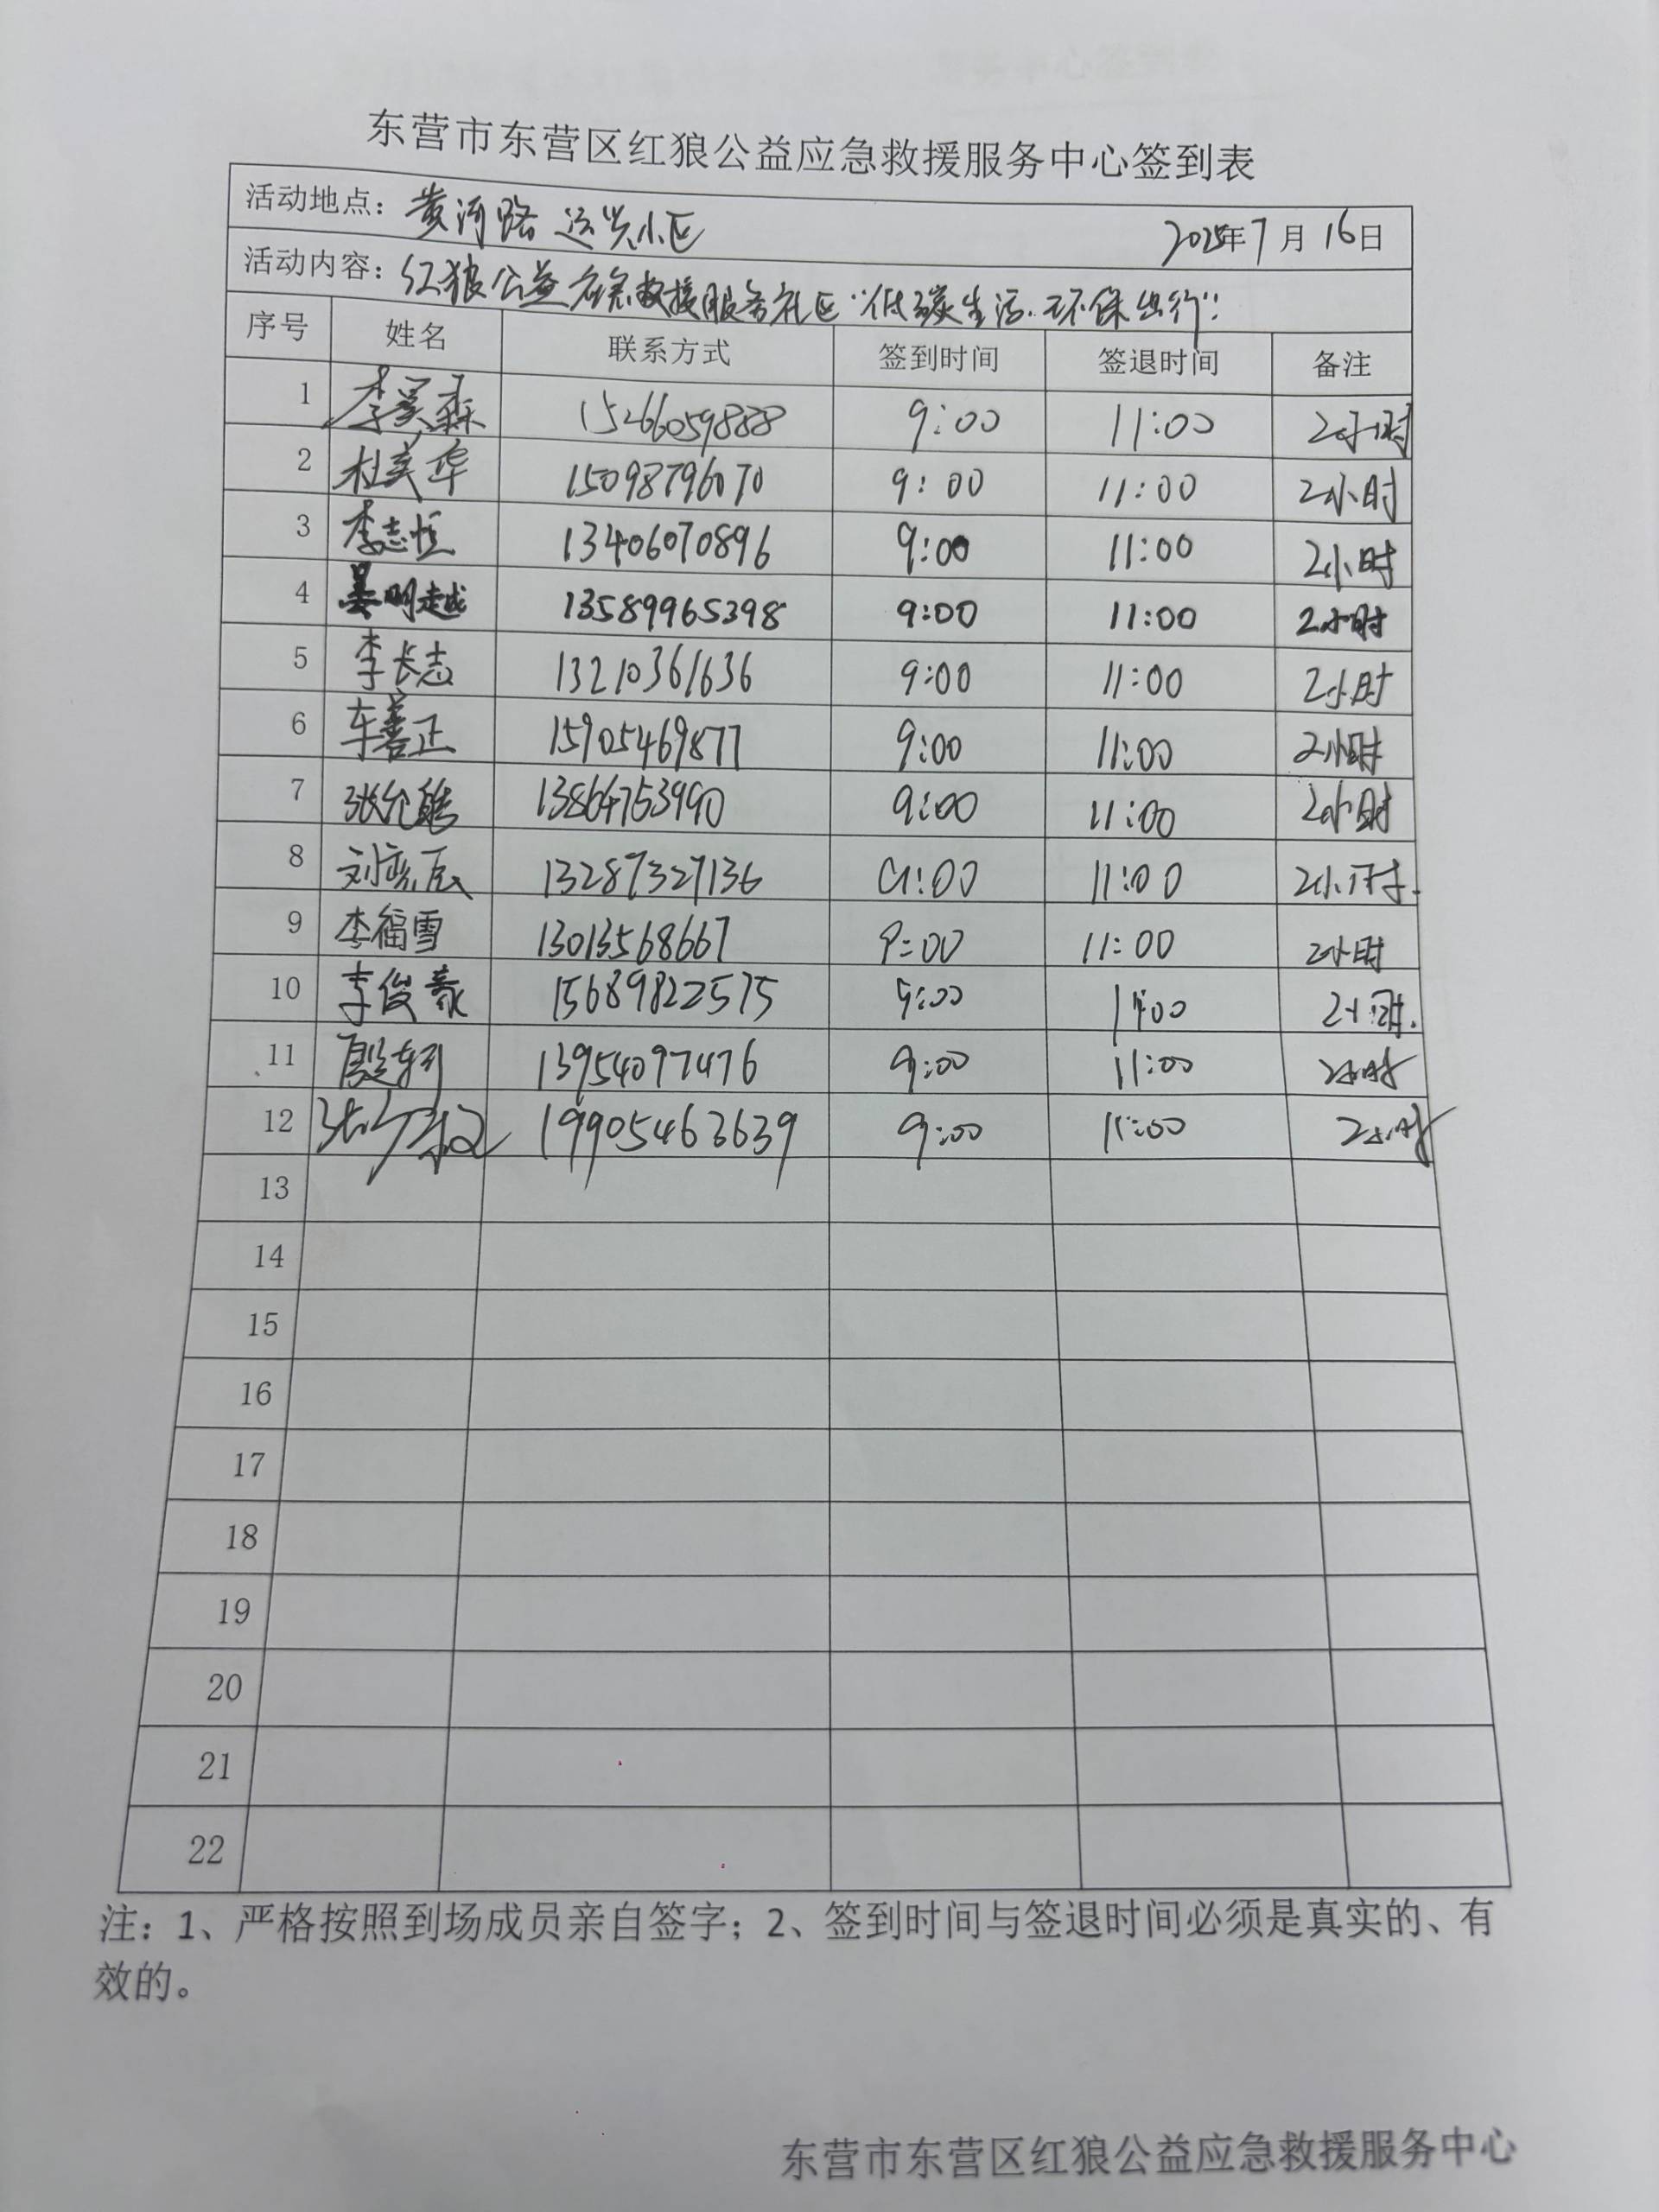 东营市东营区红狼公益应急救援服务中心签到表
活动地点：黄河路运兴小区 2025年7月16日
活动内容：红狼公益应急救援服务社区“低碳生活.环保出行”
序号 姓名 联系方式 签到时间 签退时间 备注
1 李昊森 15266059888 9:00 11:00 2小时
2 杜美华 15098796070 9:00 11:00 2小时
3 李志恒 13406070896 9:00 11:00 2小时
4 姜明越 13589965398 9:00 11:00 2小时
5 李长志 13210361636 9:00 11:00 2小时
6 车善正 15905469877 9:00 11:00 2小时
7 张允 13864753990 9:00 11:00 2小时
8 刘 辰 13287327136 9:00 11:00 2小时.
9 李福雪 13013568667 9:00 11:00 2小时
10 李俊豪 15689822575 9:00 11:00 2小时.
11 殷 13954097476 9:00 11:00 2小时
12 张 19905463639 9:00 11:00 2小时
13
14
15
16
17
18
19
20
21
22
注：1、严格按照到场成员亲自签字；2、签到时间与签退时间必须是真实的、有
效的。
东营市东营区红狼公益应急救援服务中心